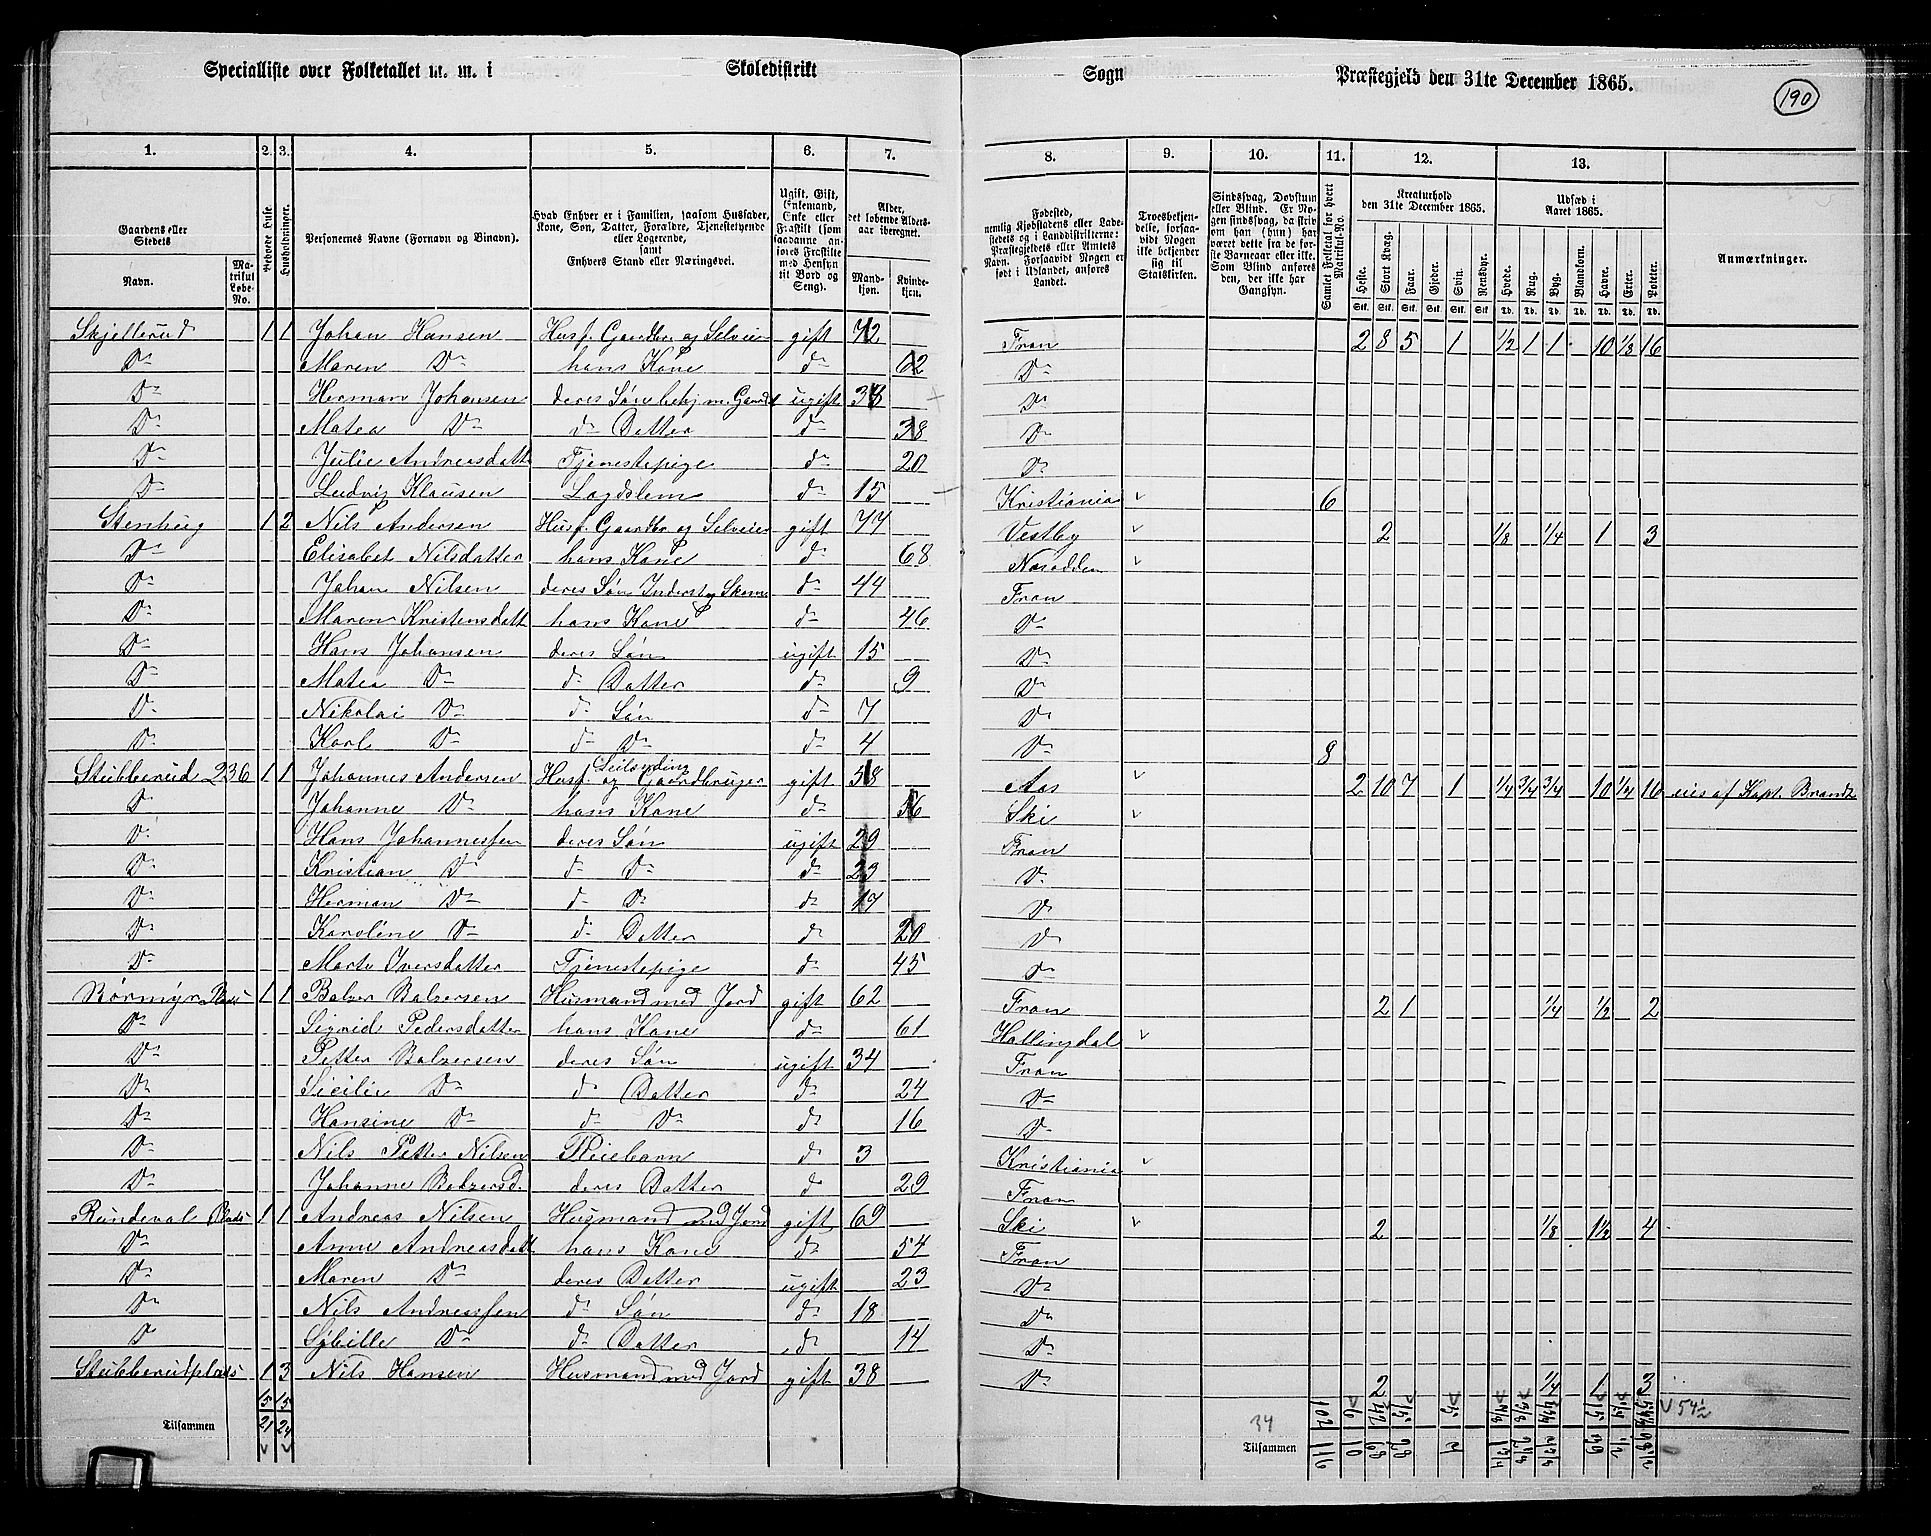 Specialliste over Folketallet m. m. i Skoledistrikt Sogn Præstegjeld den 31te December 1865.
190
1. 2. 3. 4. 5. 6. 7. 8. 9. 10. 11. 12. 13.
Gaardens eller Stedets
Navn.
Matrikul Løbe-No.
Beboede Huse.
Husholdninger.
Personernes Navne (Fornavn og Binavn).
Hvad Enhver er i Familien, saasom Husfader, Kone, Søn, Datter, Forældre, Tjenestetyende eller Logerende, samt Enhvers Stand eller Næringsvei.
Ugift, Gift, Enkemand, Enke eller Fraskilt (som saadanne anføres Fraskilte med Hensyn til Bord og Seng).
Alder, det løbende Aldersaar iberegnet.
Mandkjøn. Kvindekjøn.
Fødested, nemlig Kjøbstadens eller Ladestedets og i Landdistrikterne: Præstegjeldets eller Amtets Navn. Forsaavidt Nogen er født i Udlandet, anføres Landet.
Troesbekjendelse, forsaavidt Nogen ikke bekjender sig til Statskirken.
Sindssvag, Døvstum eller Blind. Er Nogen sindssvag, da skriv om han (hun) har været dette fra de første Barneaar eller ikke. Som Blind anføres den, der ikke har Gangsyn.
Samlet Folketal for hvert Matrikul-No.
Kreaturhold den 31te December 1865.
Heste. Stort Kvæg. Faar. Gjeder. Svin. Rensdyr.
Udsæd i Aaret 1865.
Hvede. Rug. Byg. Blandkorn. Havre. Erter. Poteter.
Anmærkninger.
Skjellerud 1 1 Johan Hansen Husf. Gaardbr. og Selveier gift 72 Fron 2 8 5 1 1/2 1 1 10 1/8 16
Do Maren Do hans Kone do 62 Do
Do Herman Johansen deres Søn behj. m. Gaards ugift 38 Do
Do Matea Do do Datter do 38 Do
Do Julie Andreasdatt Tjenestepige do 20 Do
Do Ludvig Klausen Lægdslem do 15 Kristiania 6
Stenbug 1 2 Nils Andersen Husf. Gaardbr og Selveier gift 77 Vestby 2 1/8 1/4 1 3
Do Elisabet Nilsdatter hans Kone do 68 Næsodden
Do Johan Nilsen deres Søn Inderst og Skom do 44 Fron
Do Maren Kristensdatt hans Kone do 46 Do
Do Hans Johansen deres Søn ugift 15 Do
Do Matea Do do Datter do 9 Do
Do Nikolai Do do Søn do 7 Do
Do Karl Do do Do do 4 Do 8
Stubberud 236 1 1 Johannes Andersen Husf. Leilænding og Gaardbruger gift 58 Aas 2 10 7 1 1/4 3/4 3/4 10 1/4 16 eies af Kapt. Brandt
Do Johanne Do hans Kone do 56 Ski
Do Hans Johannessen deres Søn ugift 29 Fron
Do Kristian Do do Do do 23 Do
Do Herman Do do Do do 17 Do
Do Karoline Do do Datter do 20 Do
Do Marte Iversdatter Tjenestepige do 45 Do
Børmyr Plads 1 1 Balzer Balzersen Husmand med Jord gift 62 Fron 2 1 1/4 1/2 2
Do Sigrid Pedersdatter hans Kone do 61 Hallingdal
Do Petter Balzersen deres Søn ugift 34 Fron
Do Sicilie Do do Datter do 24 Do
Do Hansine Do do Do do 16 Do
Do Nils Petter Nilsen Pleiebarn do 3 Kristiania
Do Johanne Balzersd. deres Datter do 29 Fron
Rundeval Plads 1 1 Andreas Nilsen Husmand med Jord gift 69 Ski 2 1/8 1 1/2 4
Do Anne Andreasdatt hans Kone do 54 Fron
Do Maren Do deres Datter ugift 23 Do
Do Nils Andreassen do Søn do 18 Do
Do Sybille Do do Datter do 14 Do
Stubberudplads 1 3 Nils Hansen Husmand med Jord gift 38 Do 2 1/4 1 3
15 15
Tilsammen 21 24
34 Tilsammen 102 116 54 1/2